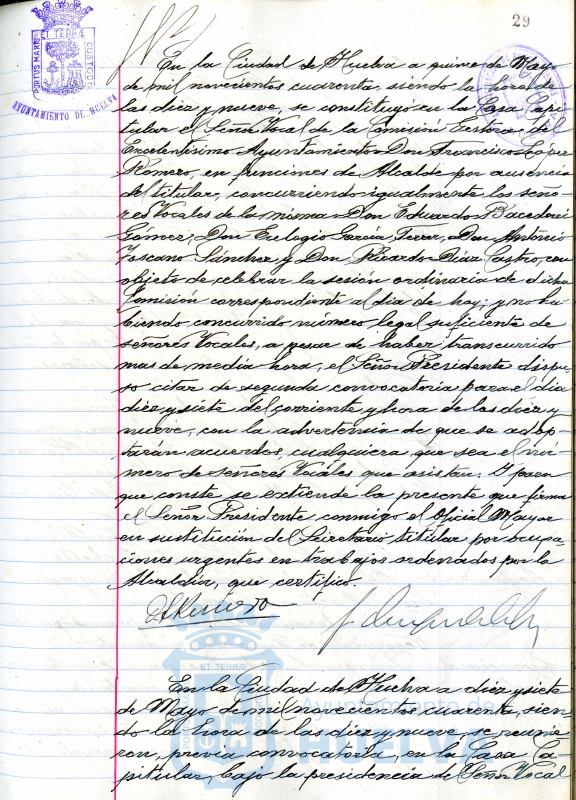 29
PORTUS MARIS ET TERRAE CUSTODIA
AYUNTAMIENTO DE HUELVA
En la Ciudad de Huelva a quince de Mayo
de mil novecientos cuarenta, siendo la hora de
las diez y nueve, se constituyó en la Casa Capi-
tular el Señor Vocal de la Comisión Gestora del
Excelentísimo Ayuntamiento Don Francisco López
Romero, en funciones de Alcalde por ausencia
del titular, concurriendo igualmente los seño-
res Vocales de la misma Don Eduardo
Gómez, Don Eulogio García Ferrer, Don Antonio
Toscano Sánchez y Don Ricardo Díaz Castro, con
objeto de celebrar la sesión ordinaria de dicha
Comisión correspondiente al día de hoy; y no ha-
biendo concurrido número legal suficiente de
señores Vocales, a pesar de haber transcurrido
mas de media hora, el Señor Presidente dispu-
so citar de segunda convocatoria para el dia
diez y siete del corriente y hora de las diez y
nueve, con la advertencia de que se adop-
tarán acuerdos, cualquiera que sea el nú-
mero de señores Vocales que asistan. Y para
que conste se extiende la presente que firma
el Señor Presidente conmigo el Oficial Mayor
en sustitución del Secretario titular por ocupa-
ciones urgentes en trabajos ordenados por la
Alcaldía, que certifico.
En la Ciudad de Huelva a diez y siete
de Mayo de mil novecientos cuarenta, sien-
do la hora de las diez y nueve, se reunie-
ron, previa convocatoria, en la Casa Ca-
pitular, bajo la presidencia de Señor Vocal
Ayuntamiento de
HUELVA